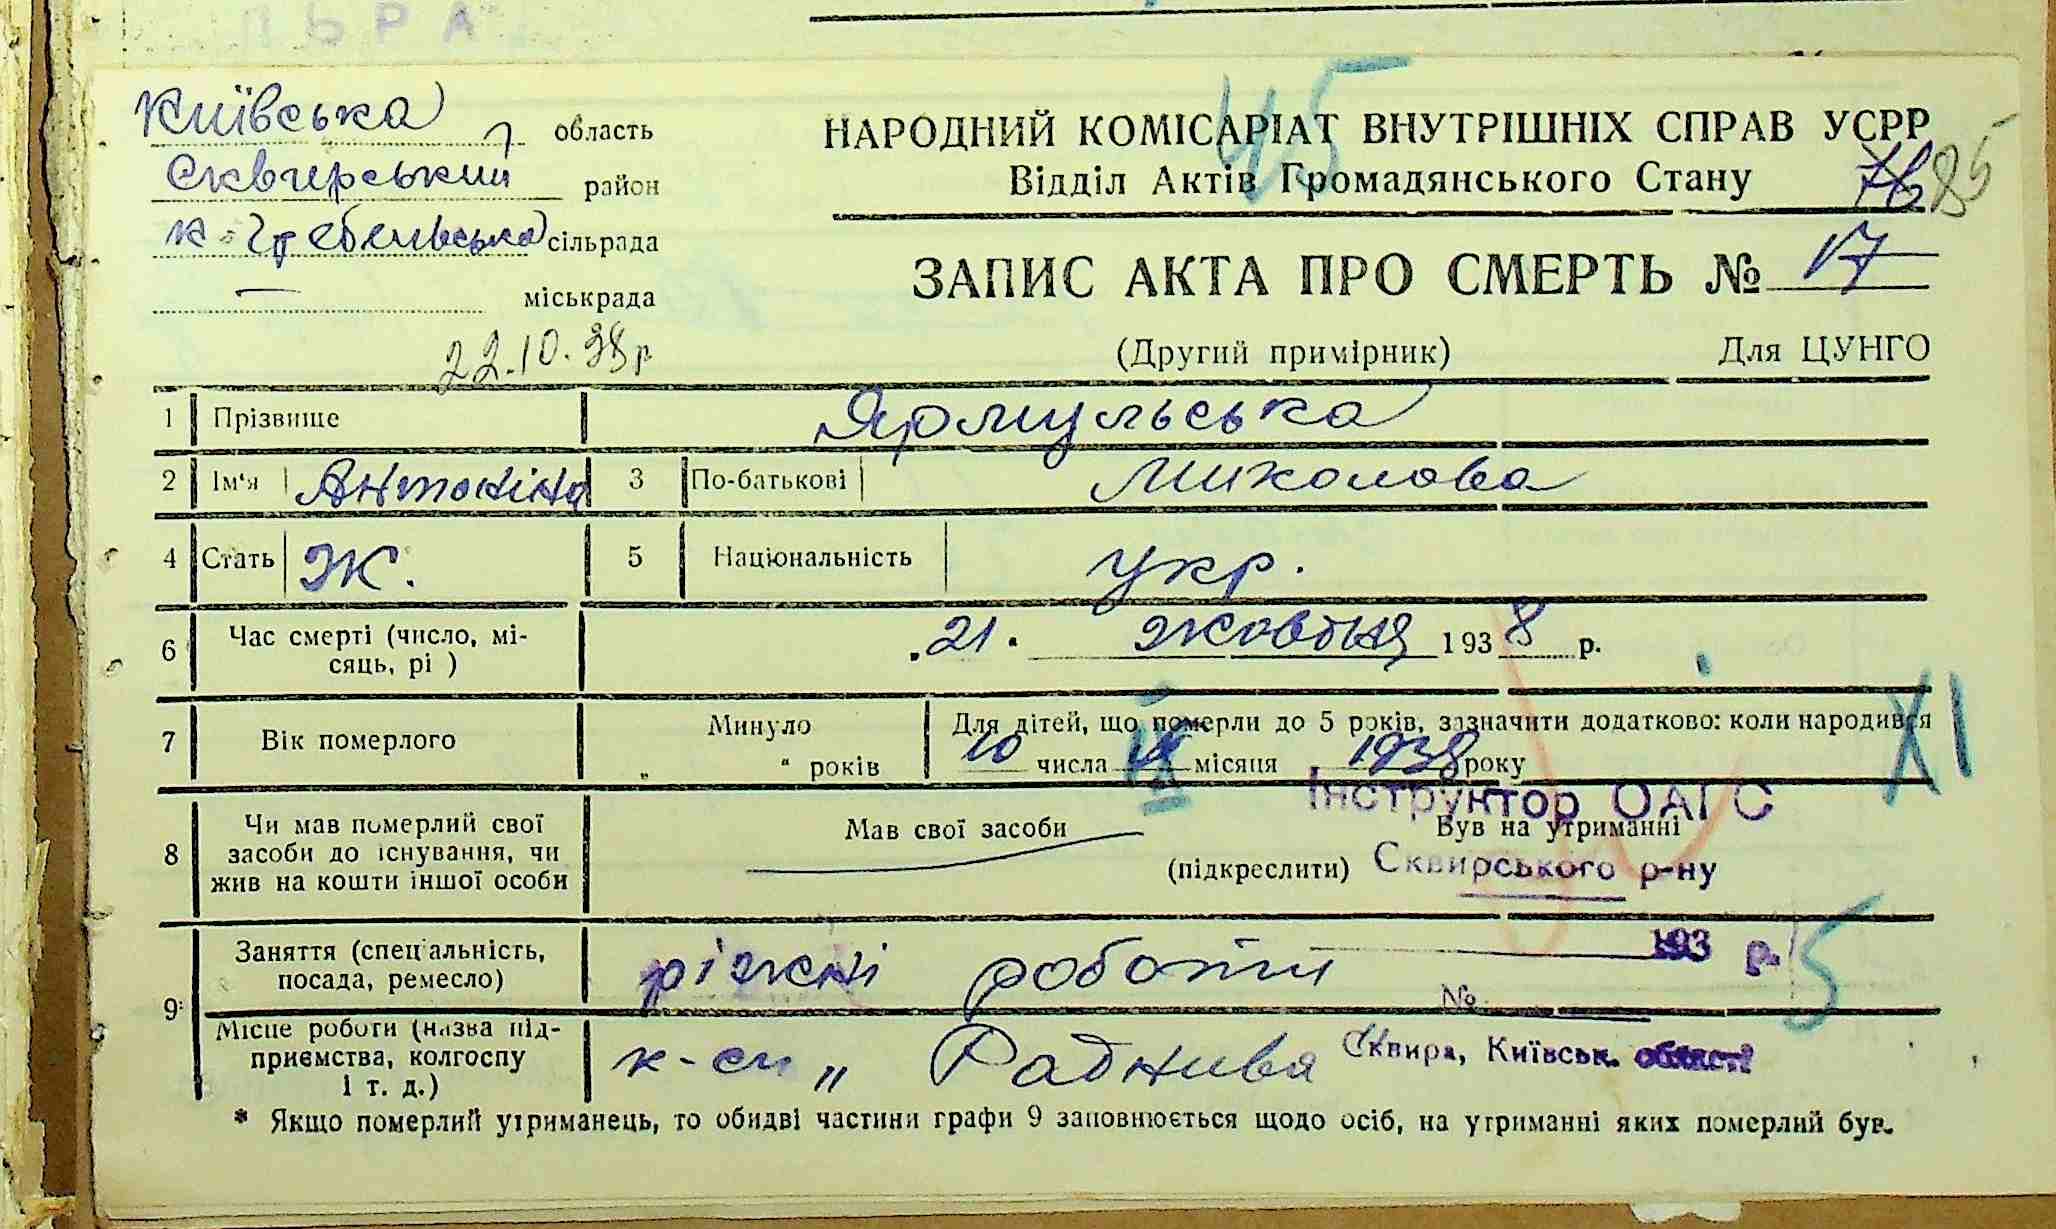 Київська область
Сквирський район
к-Гребенівська сільрада
— міськрада
22.10.38 р
НАРОДНИЙ КОМІСАРІАТ ВНУТРІШНІХ СПРАВ УСРР
45
Відділ Актів Громадянського Стану
76 85
ЗАПИС АКТА ПРО СМЕРТЬ № 17
(Другий примірник) Для ЦУНГО
1 Прізвище Ярмульська
2 Ім'я Антоніна 3 По-батькові Миколова
4 Стать Ж. 5 Національність укр.
6 Час смерті (число, мі-
сяць, рі ) 21. жовтня 1938 р.
7 Вік померлого Минуло
„ “ років
Для дітей, що померли до 5 років, зазначити додатково: коли народився
10 числа IX місяця 1938 року
XI
Інструктор ОАГС
8 Чи мав померлий свої
засоби до існування, чи
жив на кошти іншої особи
Мав свої засоби Був на утриманні
(підкреслити)
Сквирського р-ну
9* Заняття (спеціальність,
посада, ремесло) ріжні роботи
193 р.
5
№
Місце роботи (назва під-
приємства, колгоспу
і т. д.) к-сп „ Раднива
Сквира, Київськ. області
* Якщо померлий утриманець, то обидві частини графи 9 заповнюється щодо осіб, на утриманні яких померлий був.